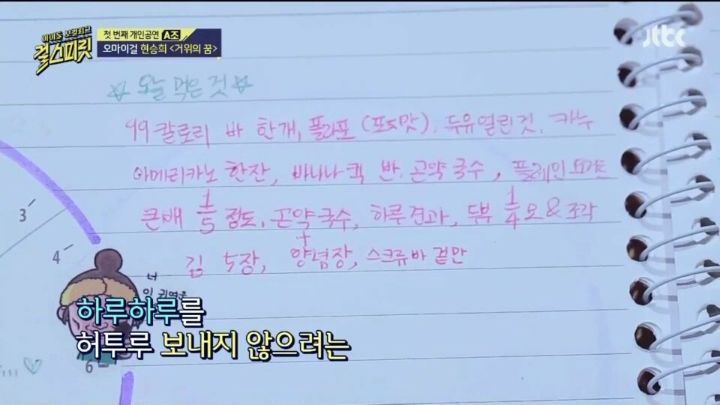 걸스피릿
첫 번째 개인공연 A조
오마이걸 현승희 <거위의 꿈>
jtbc
☆ 오늘 먹은 것 ☆
49칼로리 바 한개, 폴라포 (포도맛), 두유얼린것, 카누
아메리카노 한잔, 바나나 킥 반, 곤약국수, 플레인 요거트
큰배 1/5 정도, 곤약국수, 하루견과, 두부 1/4 모 & 조각
김 5장, + 양념장, 스크류바 겉만
3
4
너
6
하루하루를
허투루 보내지 않으려는